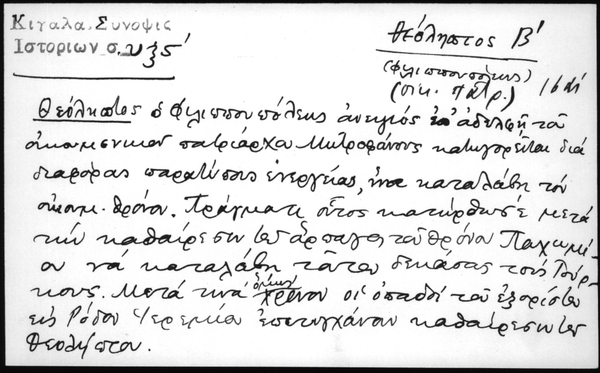 Κιγάλα, Σύνοψις
Ἱστοριῶν σ. υξς΄
Θεόληπτος Β΄
(Φιλιππουπόλεως)
(Οἰκ. Πατρ.) 16 αἰ
Θεόληπτος ὁ Φιλιππουπόλεως ἀνεψιός ἐπ' ἀδελφῇ τοῦ
οἰκουμενικοῦ πατριάρχα Μητροφάνους κατηγορεῖται διά
διαφόρας παρατύπους ἐνεργείας, ἵνα καταλάβῃ τόν
οἰκουμ. θρόνον. Πράγματι οὗτος κατώρθωσε μετά
τήν καθαίρεσιν τοῦ ἅρπαγος τοῦ θρόνου Παχωμί-
ου νά καταλάβῃ τοῦτον δεκάσας τούς Τούρ-
κους. Μετά τινα ὀλίγον χρόνον οἱ ὀπαδοί τοῦ ἐξορίστου
εἰς Ρόδον Ἱερεμίου ἐπετύγχανον καθαίρεσιν τοῦ
Θεολήπτου.